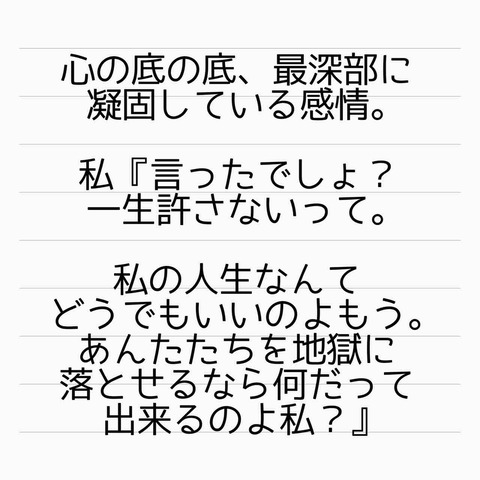 心の底の底、最深部に
凝固している感情。
私『言ったでしょ？
一生許さないって。
私の人生なんて
どうでもいいのよもう。
あんたたちを地獄に
落とせるなら何だって
出来るのよ私？』